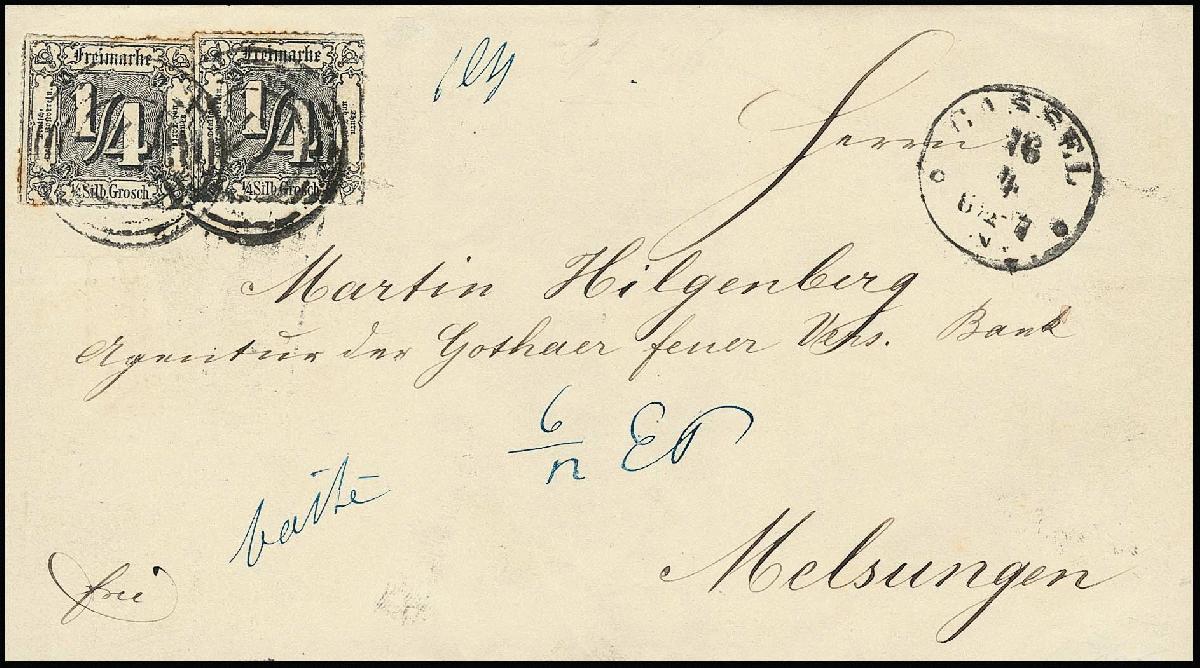 Freimarke
1/4
1/4 Silb. Grosch.
Freimarke
1/4
1/4 Silb. Grosch.
CASSEL
16
4
N.
Herrn
Martin Hilgenberg
Agentur der Gothaer feuer Vers. Bank
6
n
Melsungen
frei